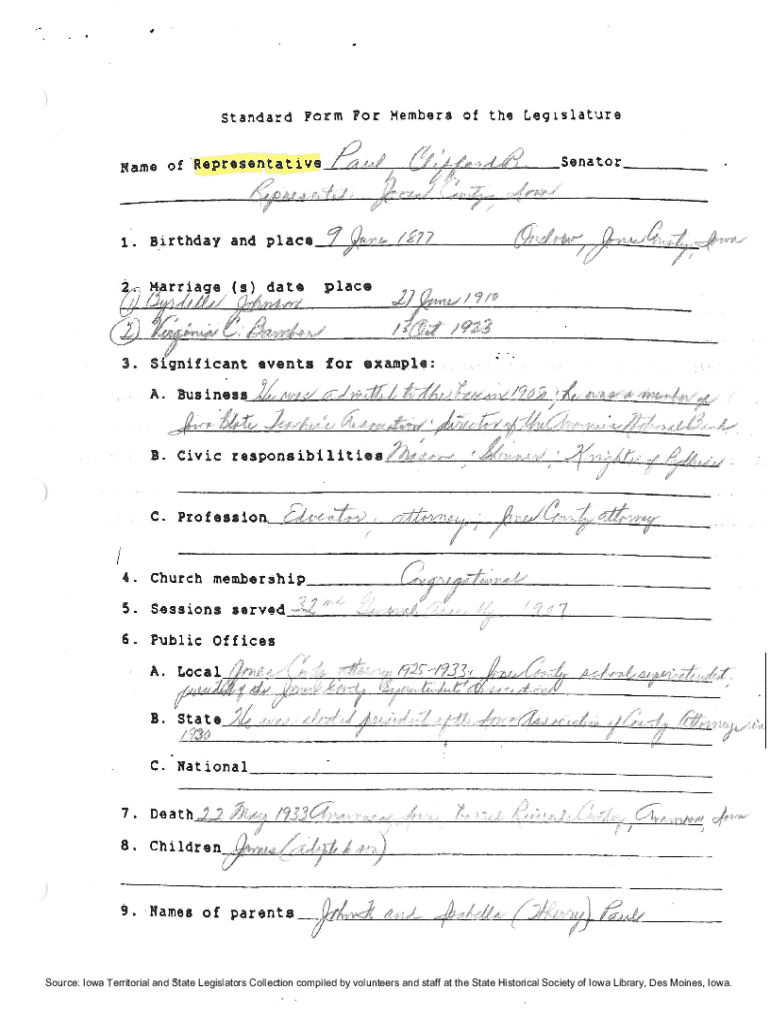 Standard Form For Members of the Legislature
Name of Representative Paul, Clifford B. Senator
Represented Jones County, Iowa
1. Birthday and place 9 June 1877 Onslow, Jones County, Iowa
2. Marriage (s) date place
(1) Byrdella Johnson 27 June 1910
(2) Virginia C. Bamber 13 Oct 1923
3. Significant events for example:
A. Business He was admitted to the bar in 1902; he was a member of
Iowa State Teacher's Association; director of the Anamosa National Bank
B. Civic responsibilities Mason; Shriner; Knights of Pythias
C. Profession Educator, attorney; Jones County attorney
4. Church membership Congregational
5. Sessions served 32nd General Assembly 1907
6. Public Offices
A. Local Jones County attorney 1925-1933; Jones County school superintendent;
president of the Jones County Superintendents Association
B. State He was elected president of the Iowa Association of County Attorneys in
1930
C. National
7. Death 22 May 1933 Anamosa, Iowa Buried Riverside Cemetery, Anamosa, Iowa
8. Children James (adopted son)
9. Names of parents John H. and Isabella Paul
Source: Iowa Territorial and State Legislators Collection compiled by volunteers and staff at the State Historical Society of Iowa Library, Des Moines, Iowa.